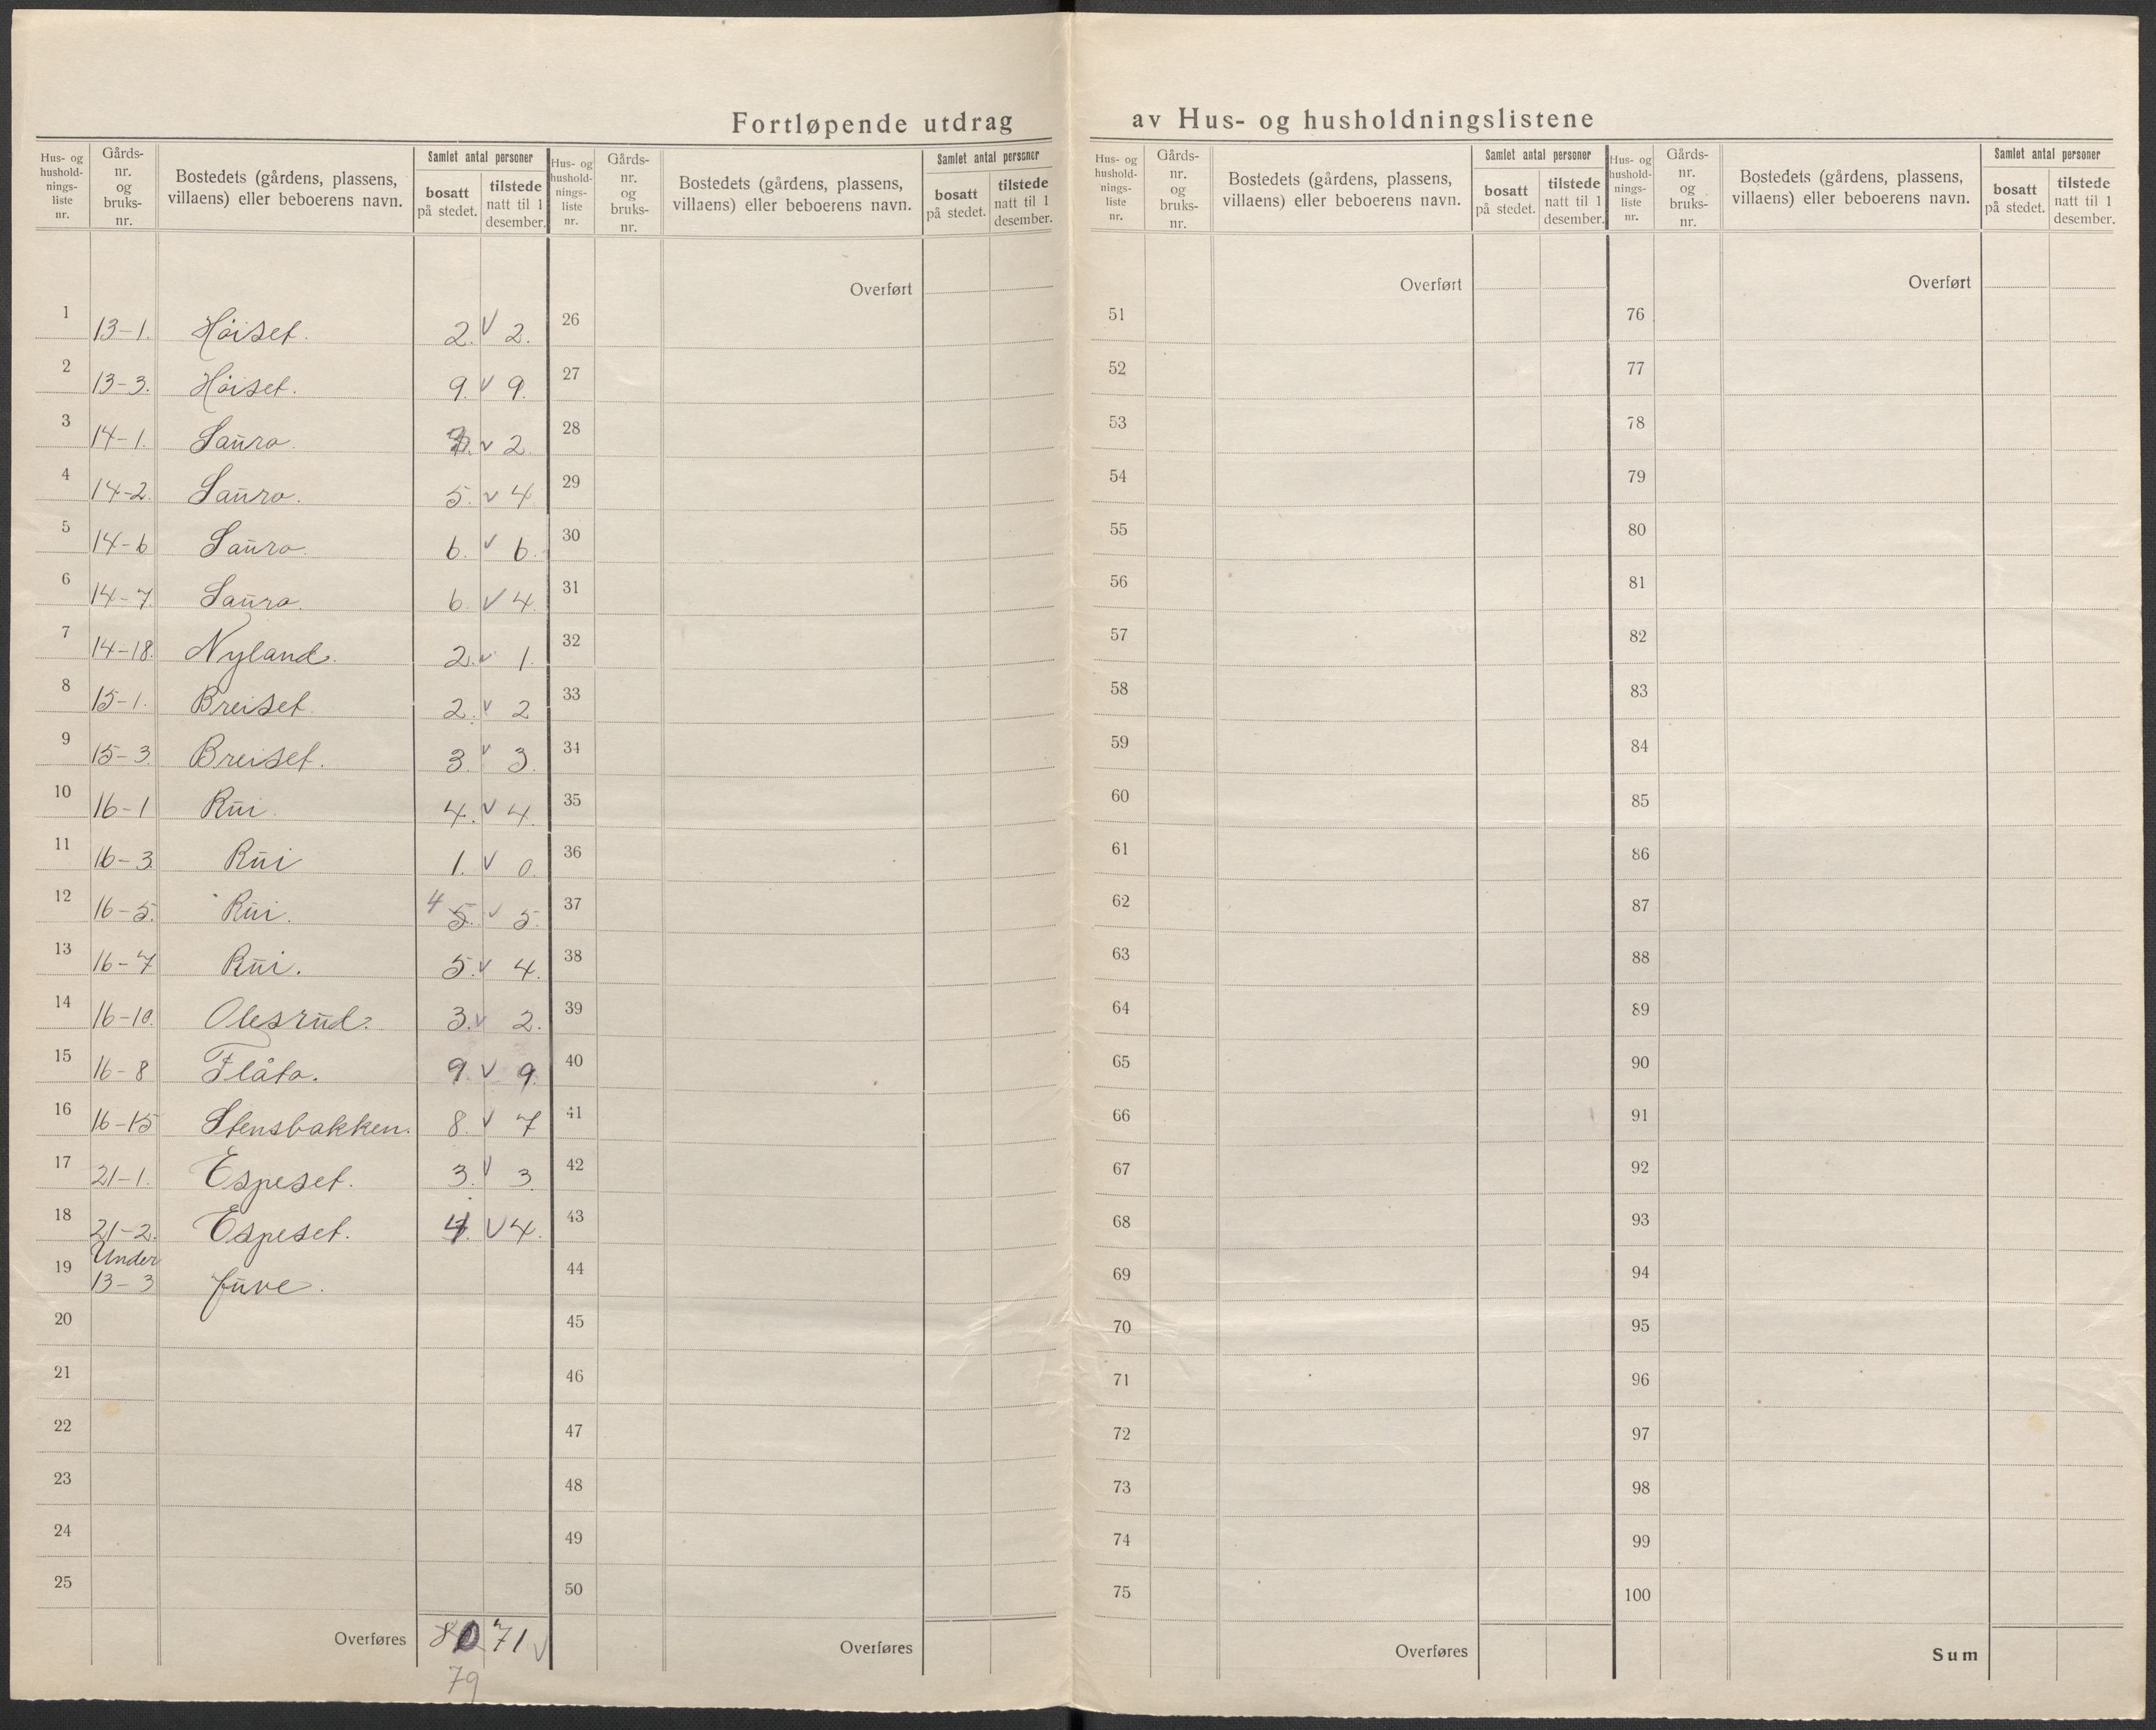 Fortløpende utdrag av Hus- og husholdningslistene
Hus- og hushold-nings-liste nr. Gårds-nr. og bruks-nr. Bostedets (gårdens, plassens, villaens) eller beboerens navn. Samlet antal personer bosatt på stedet. tilstede natt til 1 desember.
Hus- og hushold-nings-liste nr. Gårds-nr. og bruks-nr. Bostedets (gårdens, plassens, villaens) eller beboerens navn. Samlet antal personer bosatt på stedet. tilstede natt til 1 desember.
Hus- og hushold-nings-liste nr. Gårds-nr. og bruks-nr. Bostedets (gårdens, plassens, villaens) eller beboerens navn. Samlet antal personer bosatt på stedet. tilstede natt til 1 desember.
Hus- og hushold-nings-liste nr. Gårds-nr. og bruks-nr. Bostedets (gårdens, plassens, villaens) eller beboerens navn. Samlet antal personer bosatt på stedet. tilstede natt til 1 desember.
1 13-1. Höiset. 2. v 2.
2 13-3. Höiset. 9. v 9.
3 14-1. Saŭra. v 2.
4 14-2. Saŭra. 5. v 4.
5 14-6 Saŭra. 6. v 6.
6 14-7. Saŭra. 6. v 4.
7 14-18. Nyland. 2. v 1.
8 15-1. Breiset. 2. v 2
9 15-3. Breiset. 3. v 3.
10 16-1 Rŭi. 4. v 4.
11 16-3. Rŭi 1. v 0.
12 16-5. Rŭi. 4 5. v 5.
13 16-7 Rŭi. 5. v 4.
14 16-10. Olesrŭd. 3. v 2.
15 16-8 Flåta. 9. v 9.
16 16-15 Stensbakken. 8. v 7
17 21-1. Espeset. 3. v 3.
18 21-2. Espeset. 4. v 4.
19 Under
13-3 Jŭve.
20
21
22
23
24
25
Overføres 80 71 v
79
Overført
26
27
28
29
30
31
32
33
34
35
36
37
38
39
40
41
42
43
44
45
46
47
48
49
50
Overføres
Overført
51
52
53
54
55
56
57
58
59
60
61
62
63
64
65
66
67
68
69
70
71
72
73
74
75
Overføres
Overført
76
77
78
79
80
81
82
83
84
85
86
87
88
89
90
91
92
93
94
95
96
97
98
99
100
Sum